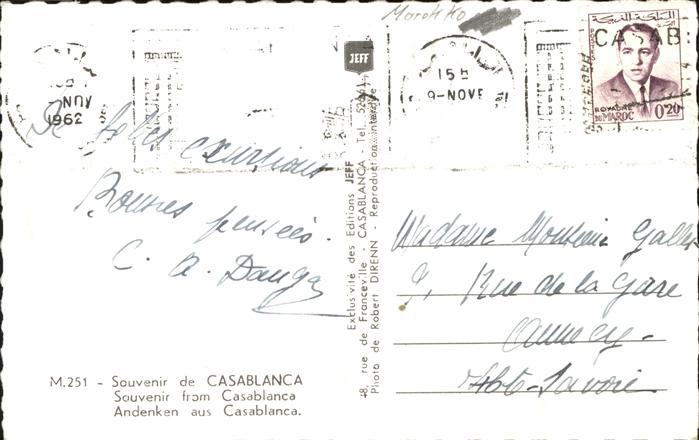 Marokko
JEFF
CASAB
15H
9-NOVE
NOV
1962
ROYAUME
DU MAROC
0'20
De belles excursions
Bonnes pensées.
C. A.
Exclusivité des Editions JEFF
48, rue de Franceville - CASABLANCA - Tel.
Photo de Robert DIRENN - Reproduction interdite
Madame Monsieur
Rue de la Gare
Annecy -
Hte-Savoie
M.251 - Souvenir de CASABLANCA
Souvenir from Casablanca
Andenken aus Casablanca.